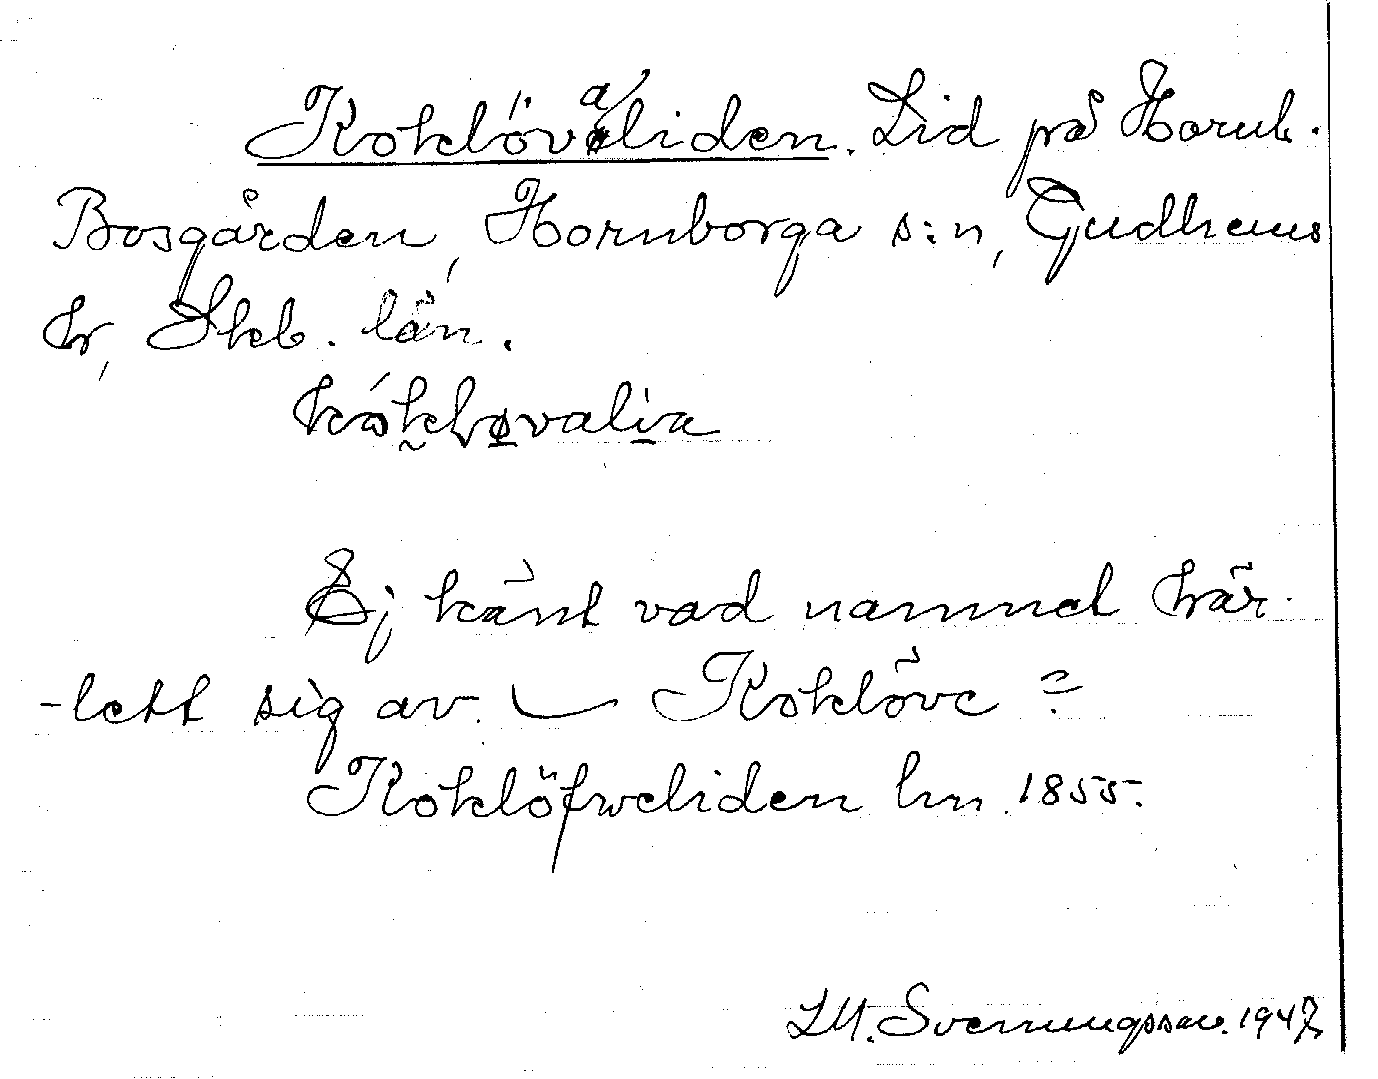 Koklövaliden. Lid på Hornb.
Bosgården, Hornborga s:n, Gudhems
hr, Skb. län.
Ej känt vad namnet här-
-lett sig av. Koklöve?
Koklöfweliden hm 1855.
M. Svenungsson. 1947